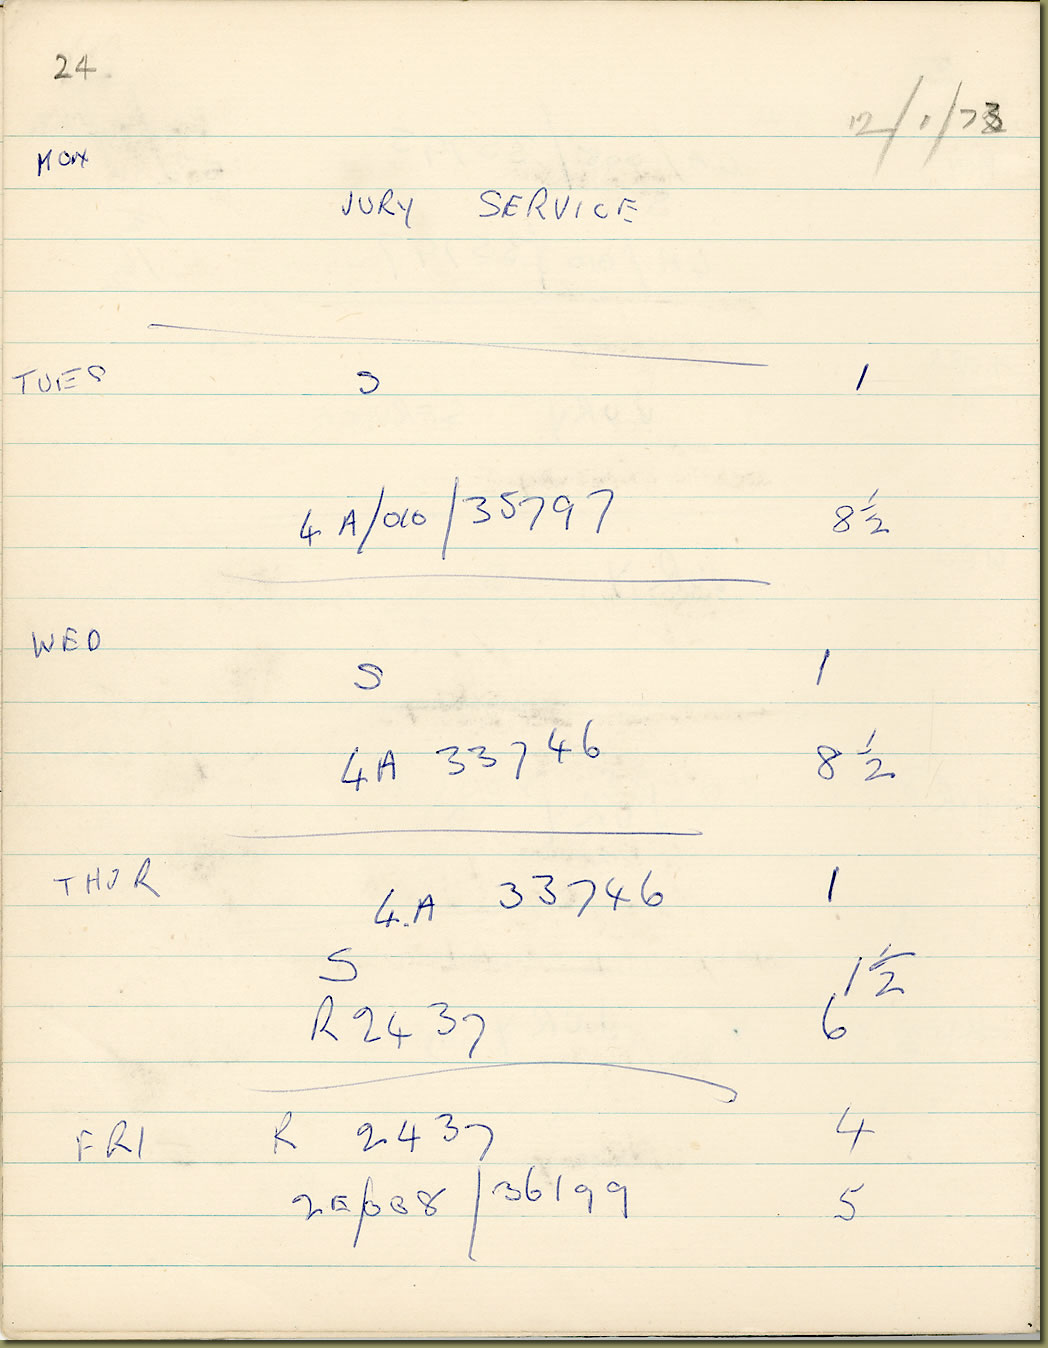 24
12/1/73
MON
JURY SERVICE
TUES S 1
4A/010/35797 8½
WED
S 1
4A 33746 8½
THUR 4.A 33746 1
S 1½
R2437 6
FRI R 2437 4
2E/338/36199 5